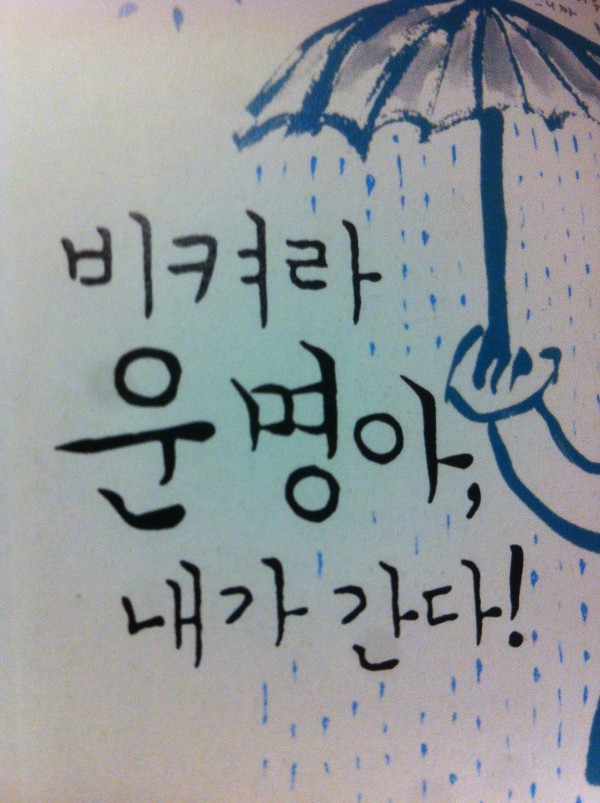 비켜라
운명아,
내가 간다!